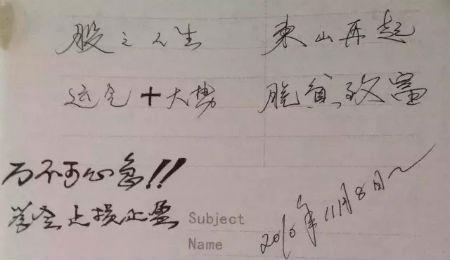 股之人生 東山再起
运气+大势 脱贫致富
万不可心急!!
学会止损止盈
Subject
Name
2016年11月8日